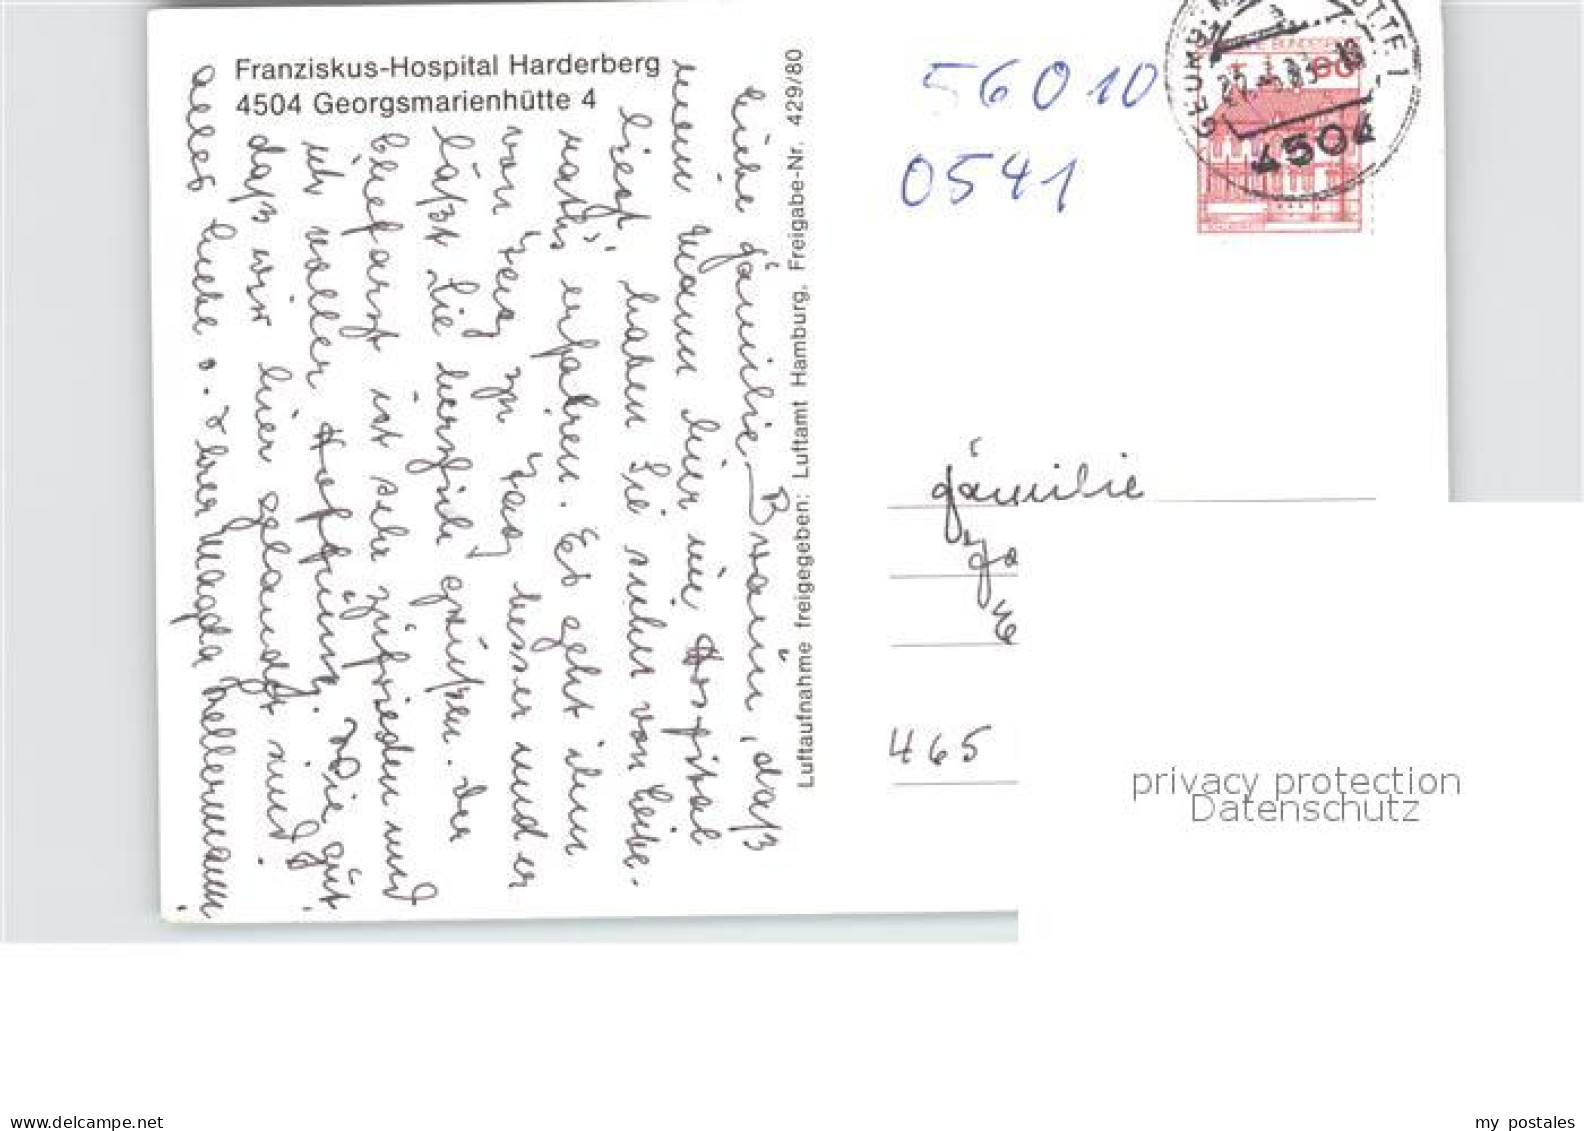 Franziskus-Hospital Harderberg
4504 Georgsmarienhütte 4
Luftaufnahme freigegeben: Luftamt Hamburg, Freigabe-Nr. 429/80
Liebe Familie Braun, daß
mein Mann hier im Hospital
liegt, haben Sie sicher von Leibe-
raths erfahren. Es geht ihm
von Tag zu Tag besser und er
läßt Sie herzlich grüßen. Der
Chefarzt ist sehr zufrieden und
ich voller Hoffnung. Wie gut,
daß wir hier gelandet sind!
alles Liebe v. Ihrer Magda Kellermann.
56010
0541
4504
Familie
465
privacy protection
Datenschutz
www.delcampe.net
my postales